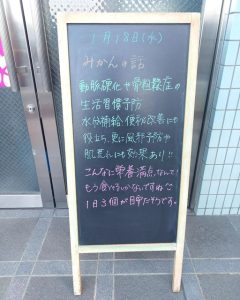 1月18日(水)
みかんの話
動脈硬化や骨粗鬆症の
生活習慣予防
水分補給、便秘改善にも
役立ち、更に風邪予防や
肌荒れにも効果あり!!
こんなに栄養満点なんて!
もう食べるしかないですね
1日3個が目安だそうです。